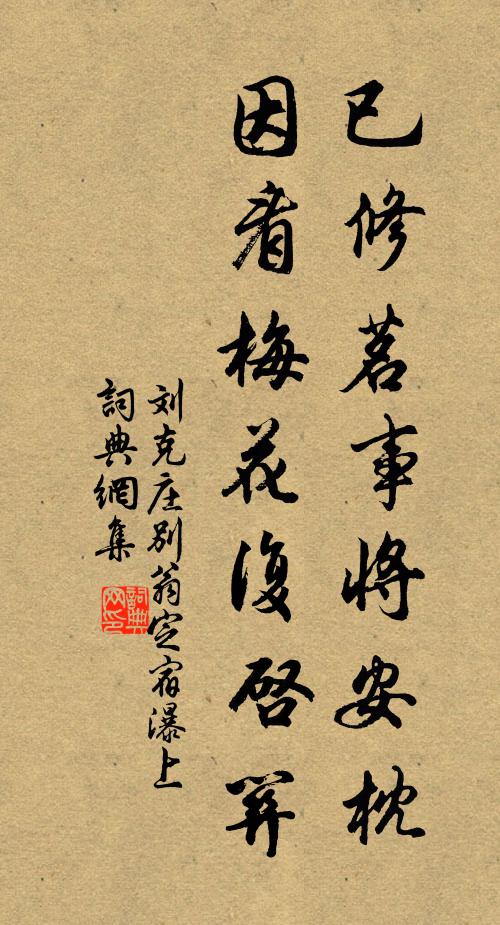 已修茗事將安枕
因看梅花復啓關
刘克庄别翁定宿瀑上
詞典網集
詞典网印